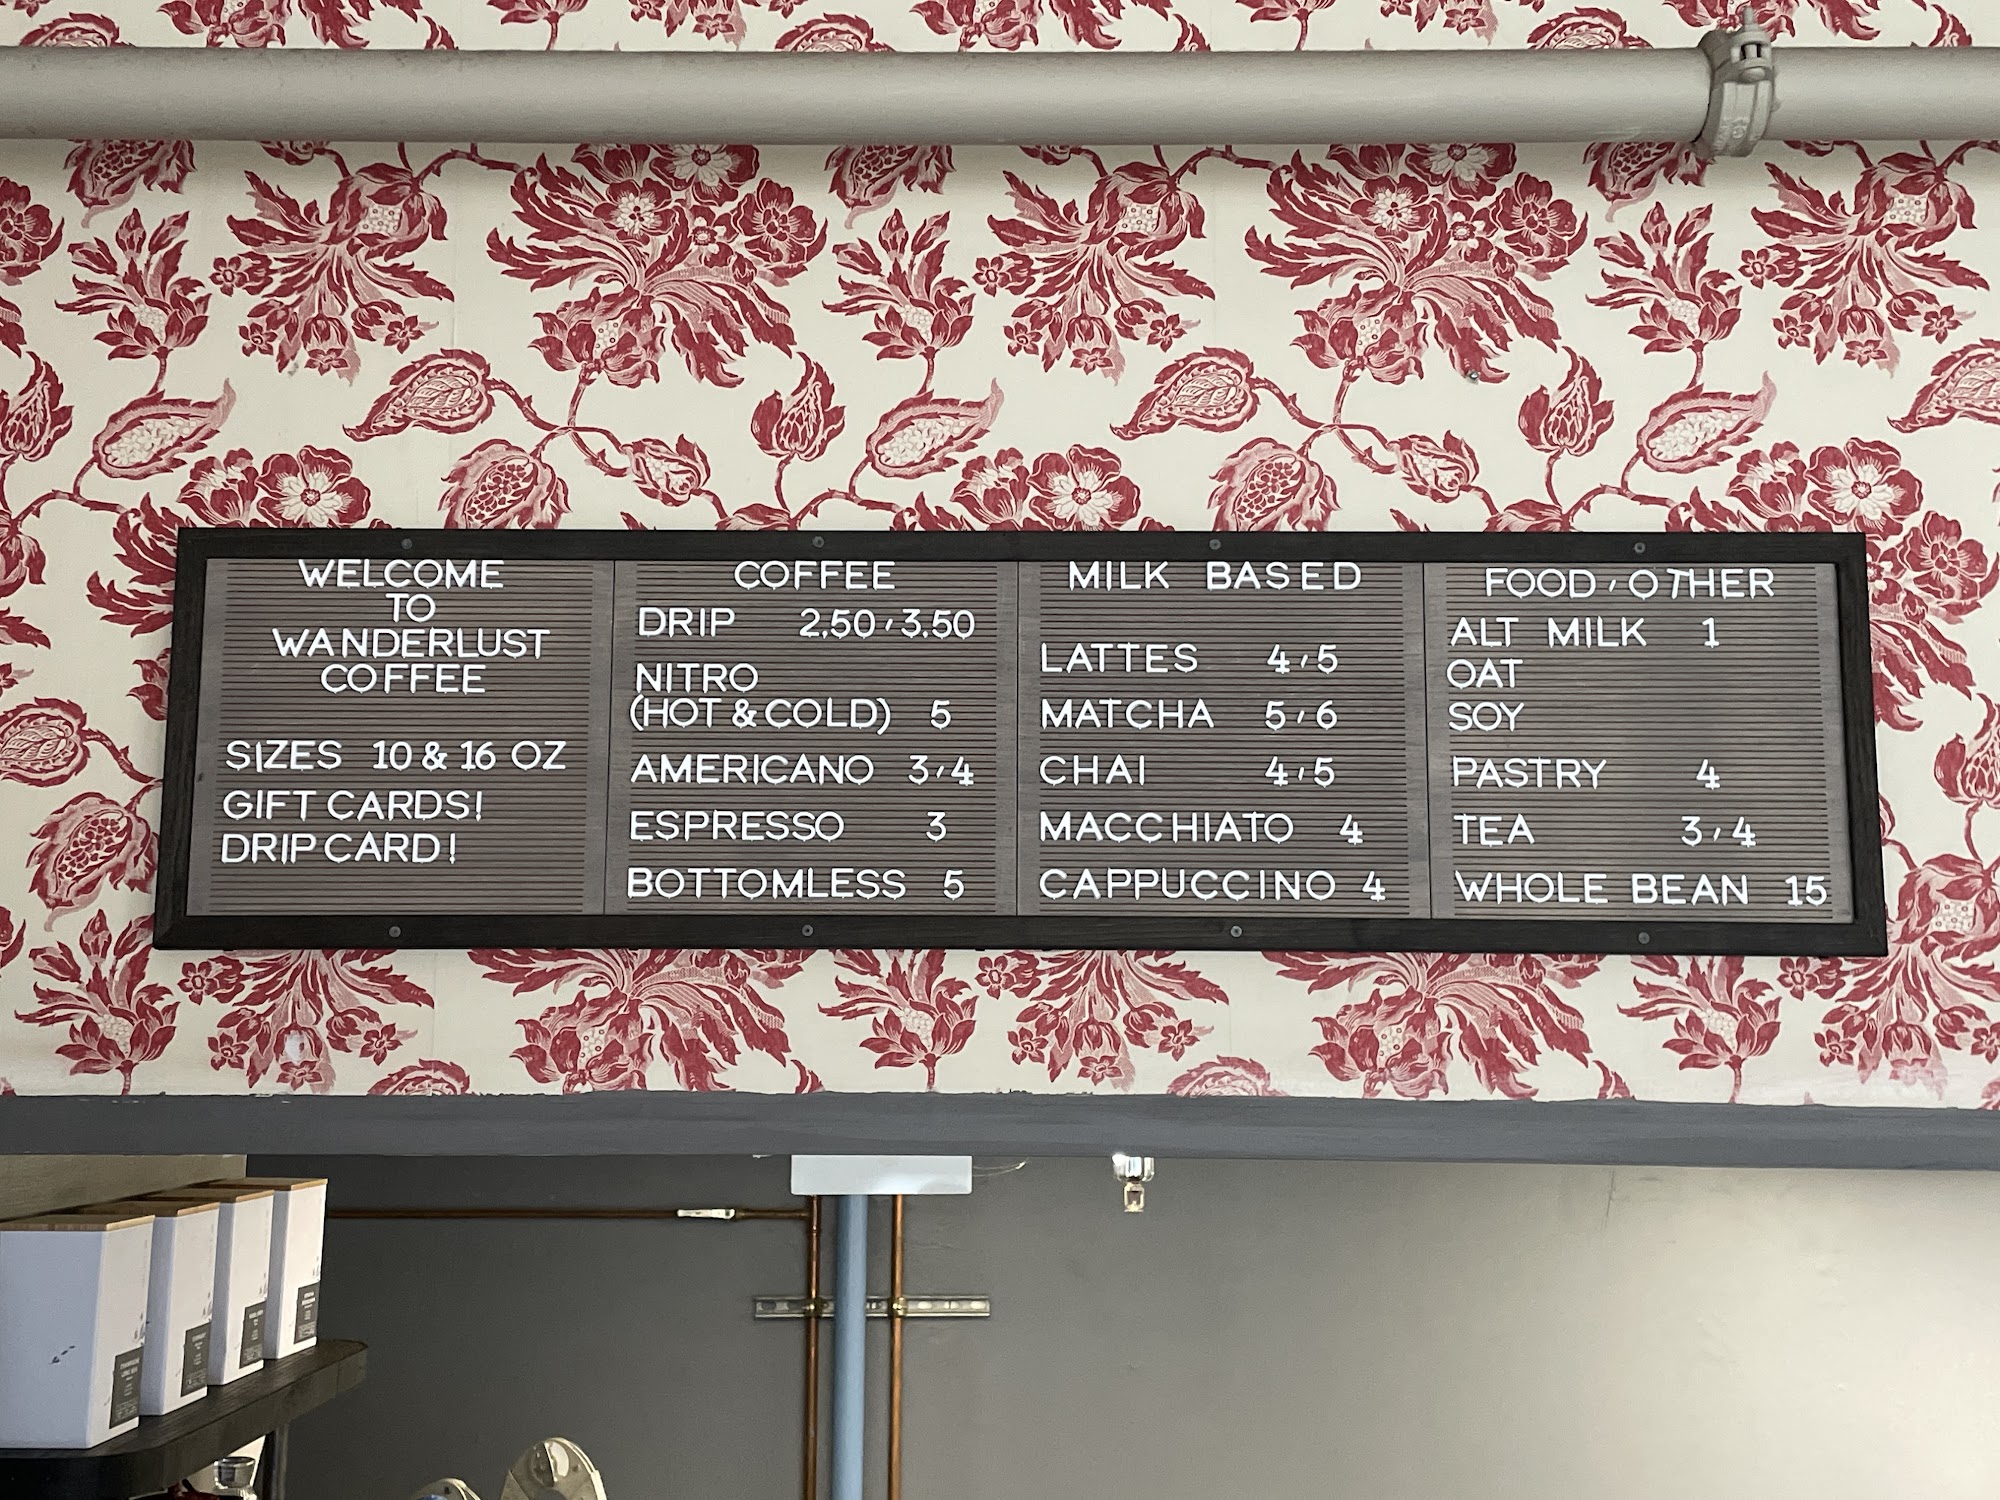 WELCOME
TO
WANDERLUST
COFFEE
SIZES 10 & 16 OZ
GIFT CARDS!
DRIP CARD!
COFFEE
DRIP 2.50/3.50
NITRO
(HOT & COLD) 5
AMERICANO 3/4
ESPRESSO 3
BOTTOMLESS 5
MILK BASED
LATTES 4/5
MATCHA 5/6
CHAI 4/5
MACCHIATO 4
CAPPUCCINO 4
FOOD/OTHER
ALT MILK 1
OAT
SOY
PASTRY 4
TEA 3/4
WHOLE BEAN 15